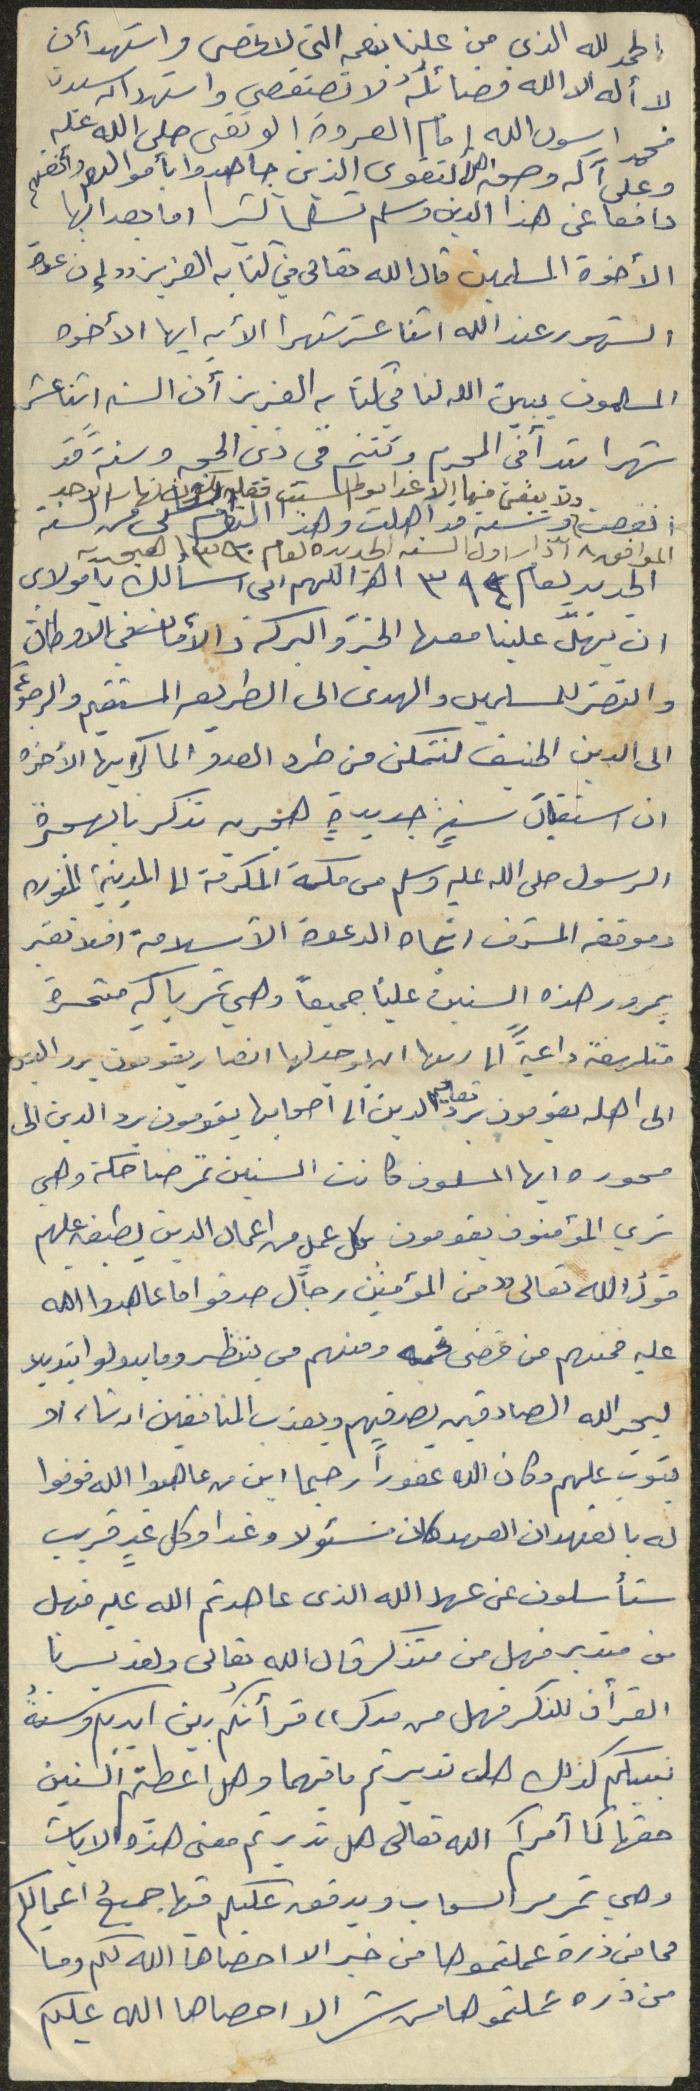 الحمد لله الذي من علينا بنعمه التي لا تحصى واشهد أن
لا أله الا الله فضائله لا تستقصى واشهد ان سيدنا
محمدا رسول الله إمام العروة الوثقى صلى الله عليه
وعلى آله وصحبه اهل التقوى الذين جاهدوا بأموالهم وأنفسهم
دافعا عن هذا الدين وسلم تسليما كثيرا اما بعد ايها
الأخوة المسلمين قال الله تعالى في كتابه العزيز ((إن عدة
الشهور عند الله اثنا عشر شهرا الأيه ايها الأخوه
المسلمون يبين الله لنا في كتابه العزيز أن السنه اثنا عشر
شهرا تبدأ في المحرم وتنتهي في ذي الحجه وسنة قد
ولا يبقى منها إلا غدا يوم السبت نهار الاحد
انقضت وسنة قد أهلت وهذا من السنة
الموافق ٨ آذار اول السنه الجديده لعام هجريه
الجديد لعام ١٣٩٤ اللهم اني اسألك يا مولاي
ان تهل علينا معها الخير والبركة والأمان في الاوطان
والنصر للمسلمين والهدى الى الطريق المستقيم والرجوع
الى الدين الحنيف لنتمكن من طرد العدو الماكر ايها الأخوه
ان استقبال سنة جديدة هجريه تذكرنا بهجرة
الرسول صلى الله عليه وسلم من مكة المكرمة الى المدينة المنوره
وموقفه المشرف اتجاه الدعوة الأسلامة افلا نعتبر
بمرور هذه السنين علينا جميعاً وهي تمر باكيه متحسرة
متلهفة داعيةً الى ربها ان يوجد لها انصار يقومون برد الدين
الى اهله يقومون برد تعاليم الدين الى أصحابها يقومون برد الدين الى
محوره ايها المسلمون كانت السنين تمر ضاحكة وهي
ترى المؤمنون يقومون بكل عمل من اعمال الدين يطبق عليهم
قول الله تعالى ((من المؤمنين رجال صدقوا ما عاهدوا الله
عليه فمنهم من قضى نحبه ومنهم من ينتظر وما بدلوا تبديلا
ليجز الله الصادقين بصدقهم ويعذب المنافقين ان شاء او
يتوب عليهم وكان الله غفوراً رحيما اين من عاهدوا الله فوفوا
له بالعهد ان العهد كان مسئولا وغدا وكل غدٍ قريب
ستأسلون عن عهد الله الذي عاهدتم الله عليه فهل
من متدبر فهل من متذكر قال الله تعالى ولقد يسرنا
القرأن للذكر فهل من مدكر)) قرأنكم بين ايديكم وسنةُ
نبيكم كذلك هل تدبرتم ما فيهما وهل اعطيتم السنين
حقها كما أمركم الله تعالى هل تدبرتم معنى هذه الايات
وهي تمر مر السحاب ويدون عليكم فيها جميعُ اعمالكم
فما من ذرة عملتموها من خير الا احصاها الله لكم وما
من ذره عملتموها من شر الا احصاها الله عليكم